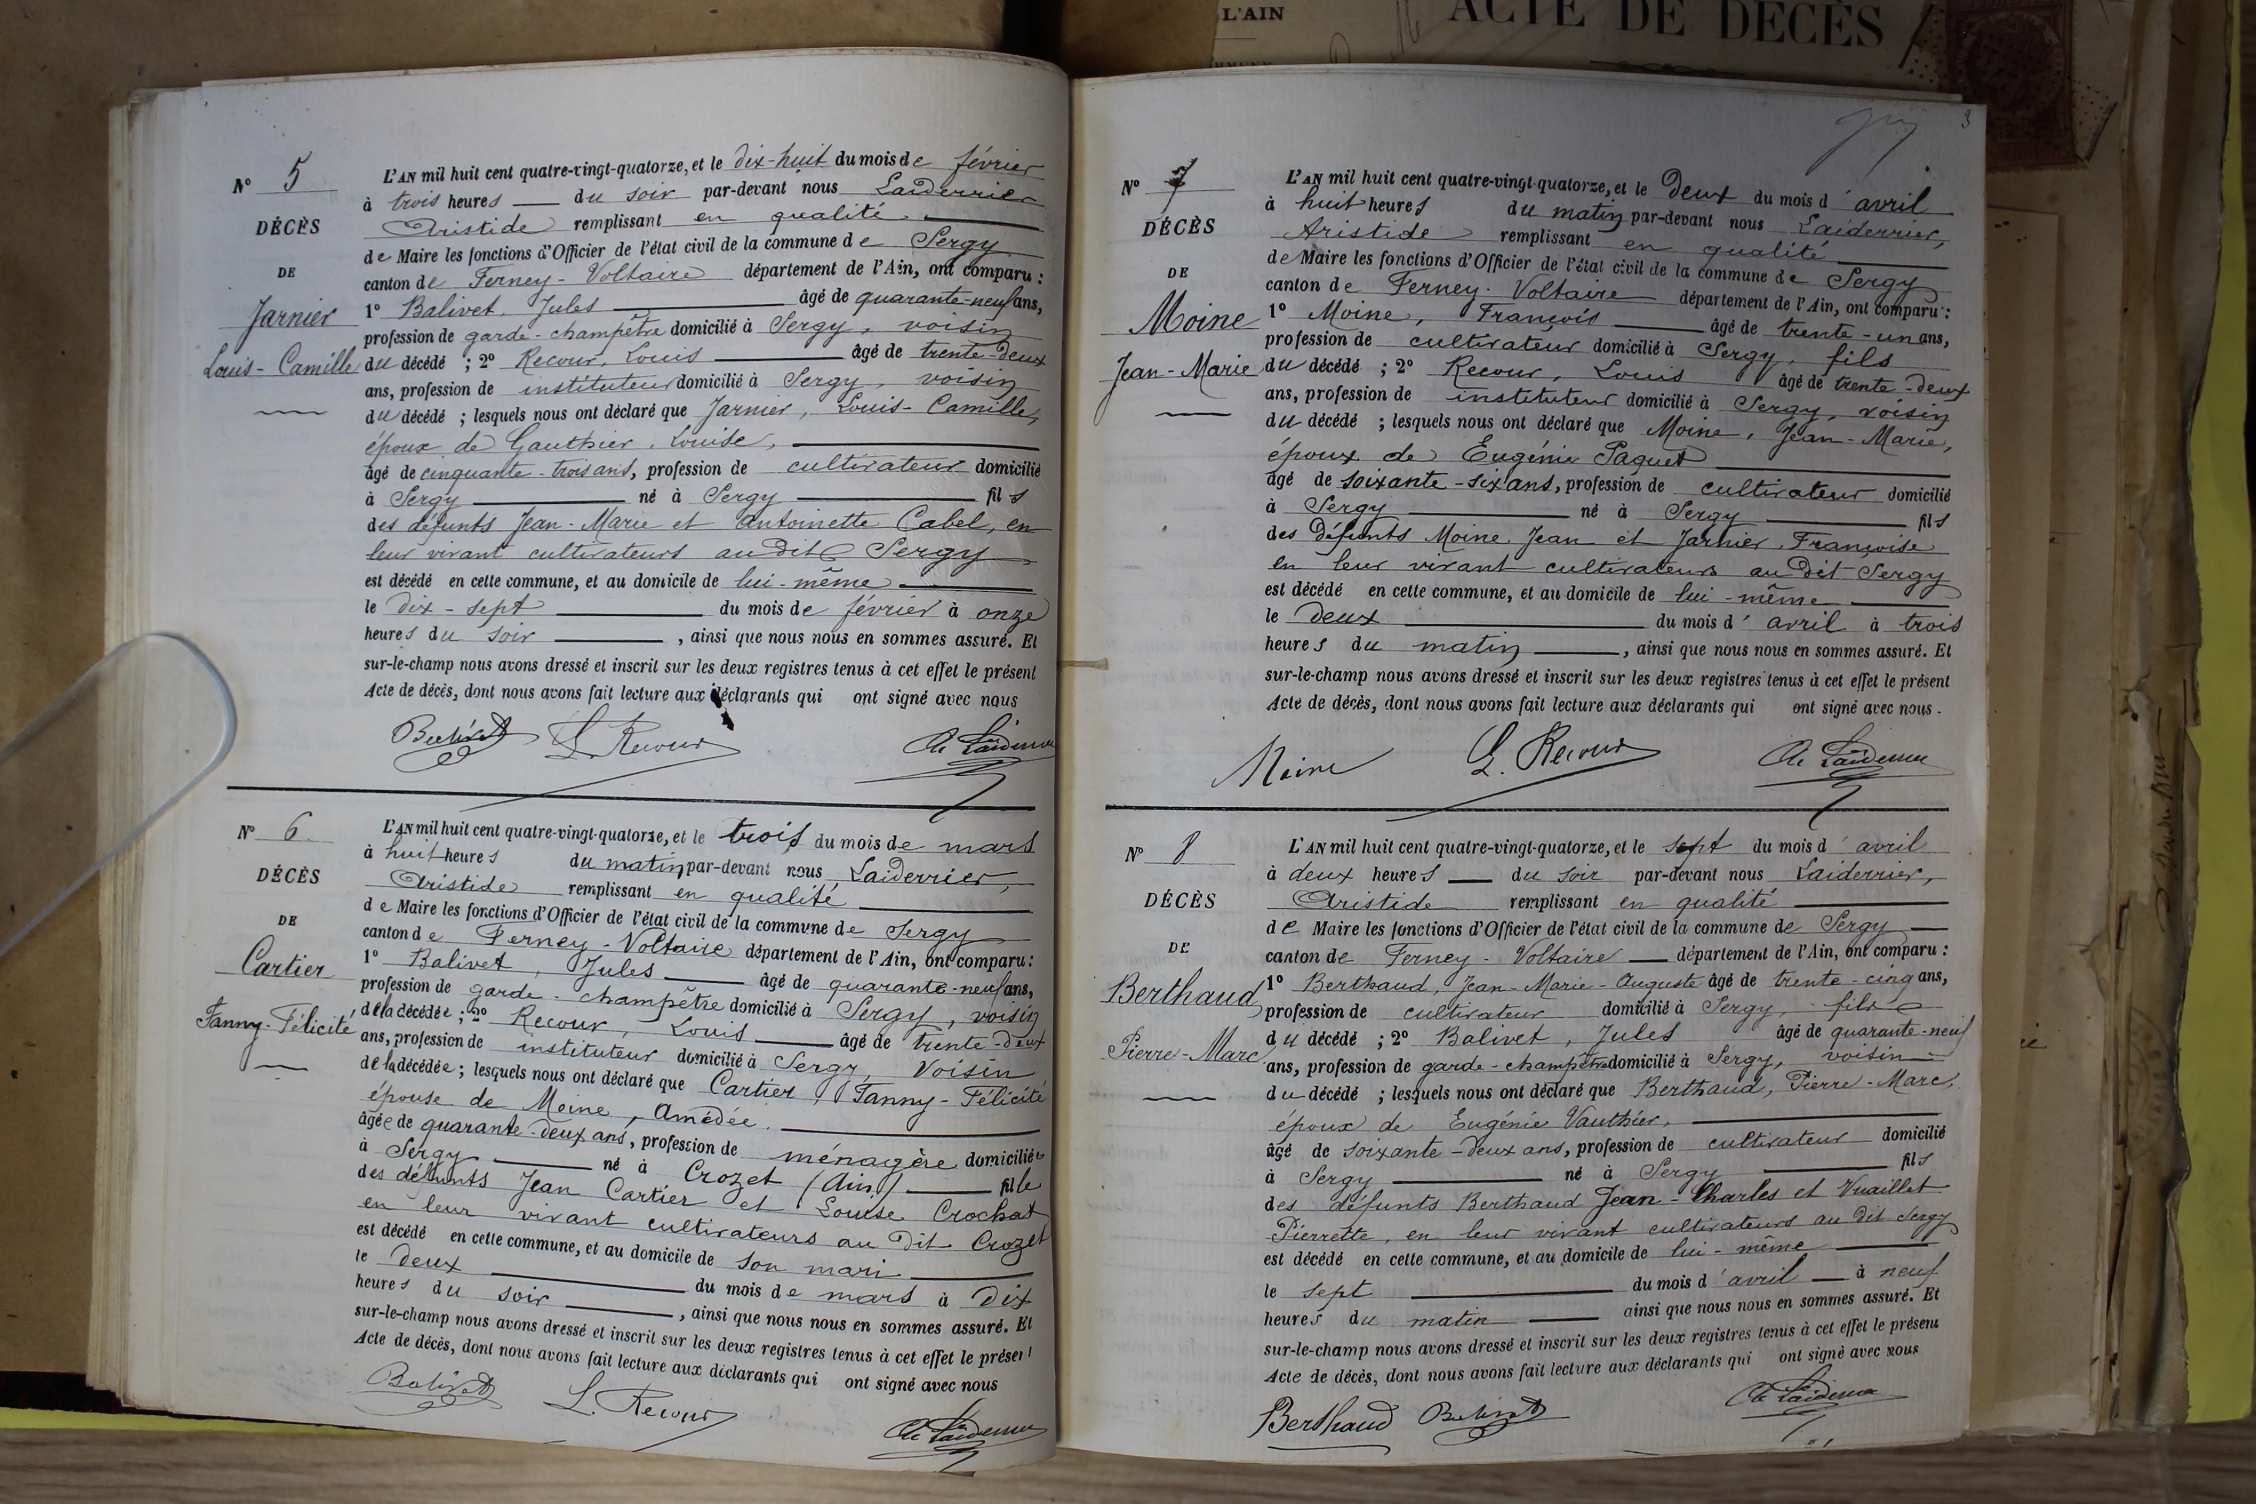 L'AIN
ACTE DE DÉCÈS
3
N° 5
DÉCÈS
DE
Jarnier
Louis-Camille
L'AN mil huit cent quatre-vingt-quatorze, et le dix-huit du mois de février
à trois heures du soir par-devant nous Laiderrier
Aristide remplissant en qualité
de Maire les fonctions d'Officier de l'état civil de la commune de Sergy
canton de Ferney-Voltaire département de l'Ain, ont comparu :
1° Balivet, Jules âgé de quarante-neuf ans,
profession de garde-champêtre domicilié à Sergy, voisin
du décédé ; 2° Recour, Louis âgé de trente-deux
ans, profession de instituteur domicilié à Sergy, voisin
du décédé ; lesquels nous ont déclaré que Jarnier, Louis-Camille,
époux de Gauthier, Louise,
âgé de cinquante-trois ans, profession de cultivateur domicilié
à Sergy né à Sergy fils
des défunts Jean-Marie et Antoinette Cabel, en
leur vivant cultivateurs au dit Sergy
est décédé en cette commune, et au domicile de lui-même
le dix-sept du mois de février à onze
heures du soir , ainsi que nous nous en sommes assuré. Et
sur-le-champ nous avons dressé et inscrit sur les deux registres tenus à cet effet le présent
Acte de décès, dont nous avons fait lecture aux déclarants qui ont signé avec nous
Balivet L. Recour A. Laiderrier
N° 6
DÉCÈS
DE
Cartier
Fanny-Félicité
L'AN mil huit cent quatre-vingt-quatorze, et le trois du mois de mars
à huit heures du matin par-devant nous Laiderrier,
Aristide remplissant en qualité
de Maire les fonctions d'Officier de l'état civil de la commune de Sergy
canton de Ferney-Voltaire département de l'Ain, ont comparu :
1° Balivet, Jules âgé de quarante-neuf ans,
profession de garde-champêtre domicilié à Sergy, voisin
de la décédée ; 2° Recour, Louis âgé de trente-deux
ans, profession de instituteur domicilié à Sergy, voisin
de la décédée ; lesquels nous ont déclaré que Cartier, Fanny-Félicité
épouse de Moine, Amédée.
âgée de quarante-deux ans, profession de ménagère domiciliée
à Sergy né à Crozet (Ain) fille
des défunts Jean Cartier et Louise Crochat
en leur vivant cultivateurs au dit Crozet
est décédé en cette commune, et au domicile de son mari
le deux du mois de mars à dix
heures du soir , ainsi que nous nous en sommes assuré. Et
sur-le-champ nous avons dressé et inscrit sur les deux registres tenus à cet effet le présent
Acte de décès, dont nous avons fait lecture aux déclarants qui ont signé avec nous
Balivet L. Recour A. Laiderrier
N° 7
DÉCÈS
DE
Moine
Jean-Marie
L'AN mil huit cent quatre-vingt-quatorze, et le deux du mois d'avril
à huit heures du matin par-devant nous Laiderrier,
Aristide remplissant en qualité
de Maire les fonctions d'Officier de l'état civil de la commune de Sergy
canton de Ferney-Voltaire département de l'Ain, ont comparu :
1° Moine, François âgé de trente-un ans,
profession de cultivateur domicilié à Sergy, fils
du décédé ; 2° Recour, Louis âgé de trente-deux
ans, profession de instituteur domicilié à Sergy, voisin
du décédé ; lesquels nous ont déclaré que Moine, Jean-Marie,
époux de Eugénie Paquet
âgé de soixante-six ans, profession de cultivateur domicilié
à Sergy né à Sergy fils
des défunts Moine Jean et Jarnier, Françoise
en leur vivant cultivateurs au dit Sergy
est décédé en cette commune, et au domicile de lui-même
le deux du mois d'avril à trois
heures du matin , ainsi que nous nous en sommes assuré. Et
sur-le-champ nous avons dressé et inscrit sur les deux registres tenus à cet effet le présent
Acte de décès, dont nous avons fait lecture aux déclarants qui ont signé avec nous.
Moine L. Recour A. Laiderrier
N° 8
DÉCÈS
DE
Berthaud
Pierre-Marc
L'AN mil huit cent quatre-vingt-quatorze, et le sept du mois d'avril
à deux heures du soir par-devant nous Laiderrier,
Aristide remplissant en qualité
de Maire les fonctions d'Officier de l'état civil de la commune de Sergy
canton de Ferney-Voltaire département de l'Ain, ont comparu :
1° Berthaud, Jean-Marie-Auguste âgé de trente-cinq ans,
profession de cultivateur domicilié à Sergy, fils
du décédé ; 2° Balivet, Jules âgé de quarante-neuf
ans, profession de garde-champêtre domicilié à Sergy, voisin
du décédé ; lesquels nous ont déclaré que Berthaud, Pierre-Marc,
époux de Eugénie Vauthier,
âgé de soixante-deux ans, profession de cultivateur domicilié
à Sergy né à Sergy fils
des défunts Berthaud Jean-Charles et Vuaillet
Pierrette, en leur vivant cultivateurs au dit Sergy
est décédé en cette commune, et au domicile de lui-même
le sept du mois d'avril à neuf
heures du matin ainsi que nous nous en sommes assuré. Et
sur-le-champ nous avons dressé et inscrit sur les deux registres tenus à cet effet le présent
Acte de décès, dont nous avons fait lecture aux déclarants qui ont signé avec nous
Berthaud Balivet A. Laiderrier